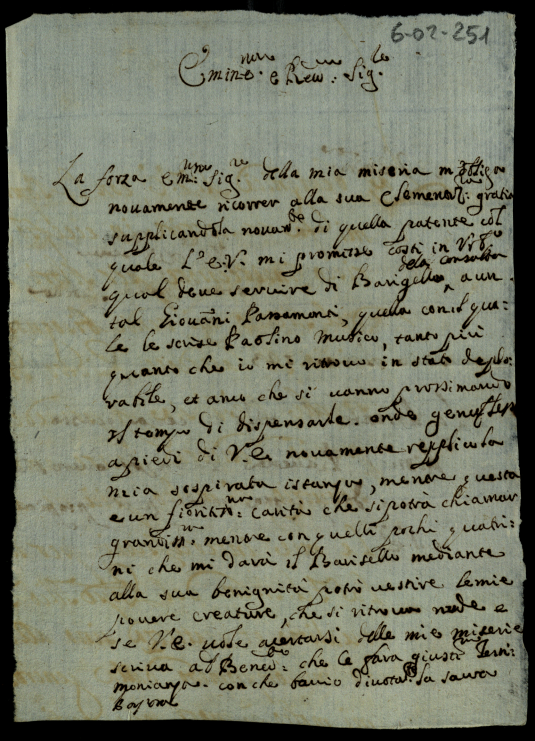 6-02-251
Emin.mo e Rev.mo Sig.re
La forza Em.mo Sig.re della mia miseria m'obliga
novamente ricorrer alla sua Clemenza gratia
supplicandola novam.te di quella patente col
quale L'E.V. mi promisse costi in
della Consulta
qual deve servire di Barigello a un
tal Giovani Passamonti, quella con il qua-
le le scrise Paolino Musico, tanto più
quanto che io mi ritrovo in stato deplo-
rabile, et anco che si vanno prossimando
il tempo di dispensarle. onde genuflesso
a piedi di V.E. novamente repplico la
mia sospirata istanza, mentre questa
e un fioritiss.ma carità che si potrà chiamar
grandiss.ma mentre con quelli pochi quatri-
ni che mi darà il Barisello mediante
alla sua benignità potrò vestire le mie
povere creature, che si ritrovan nude e
se V.E. vole acertarsi delle mie miserie
scriva al che le farà giusta Testi-
monianza. con che bacio divotam.te la sacra